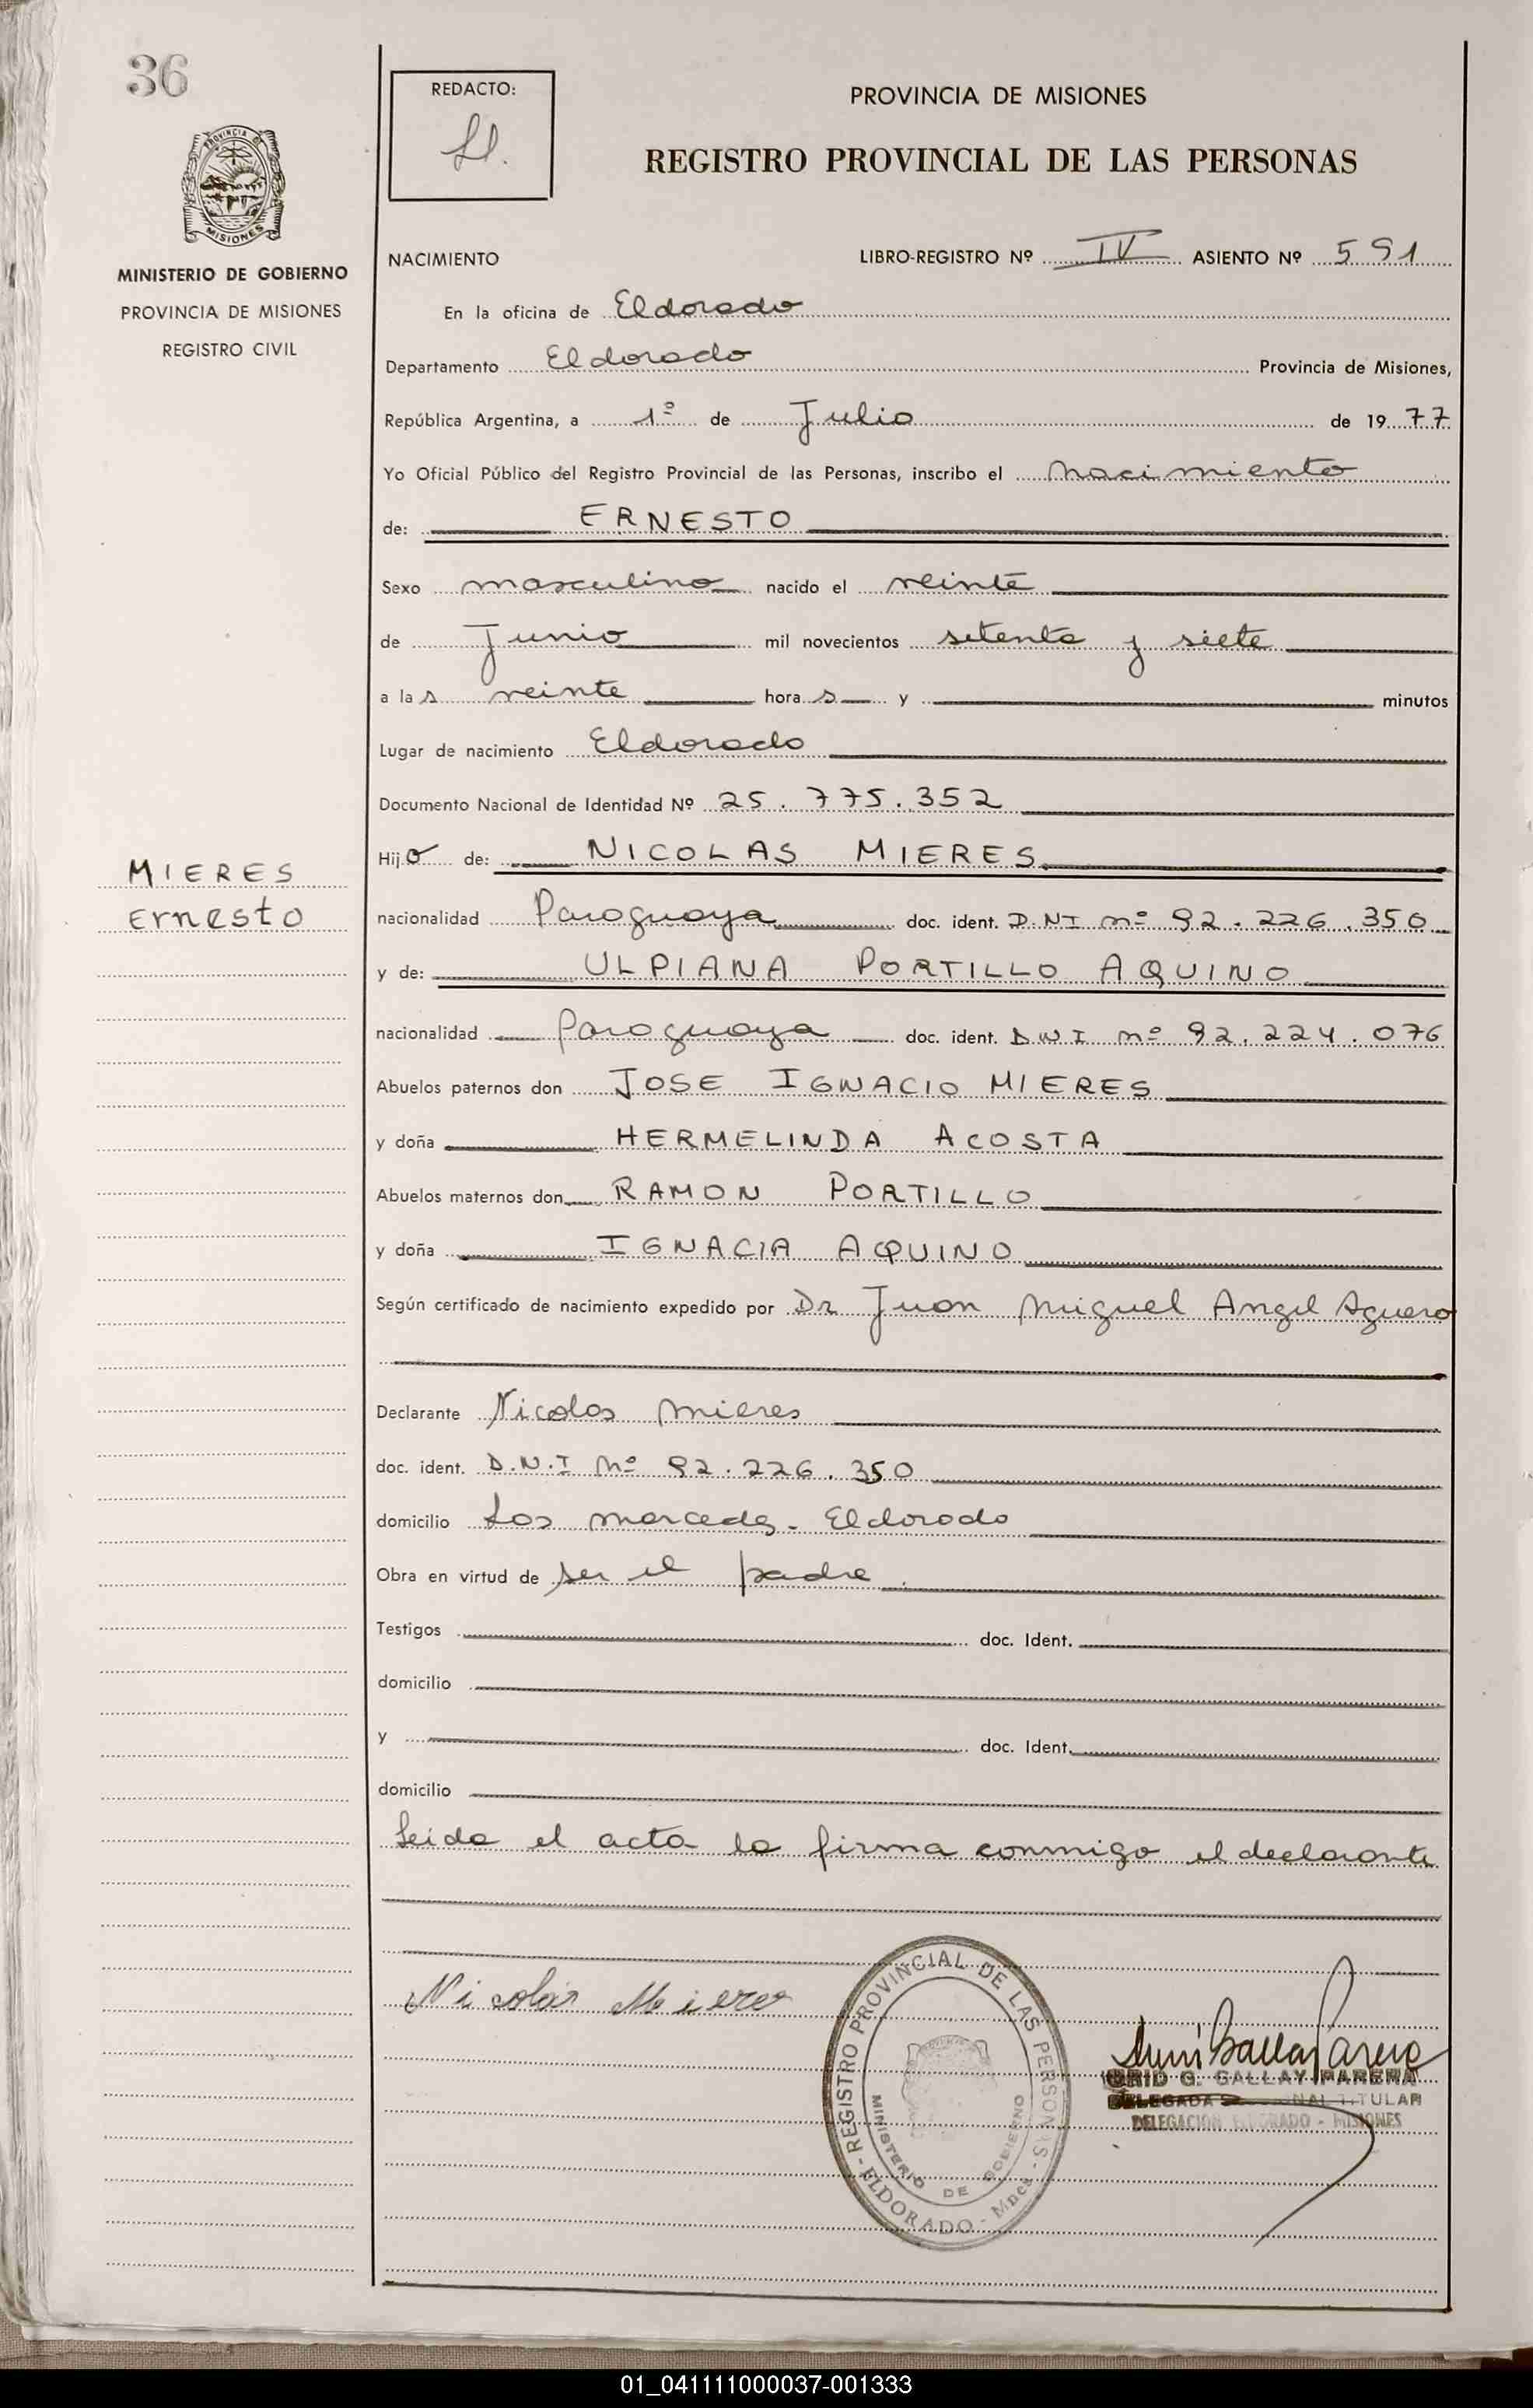 36
PROVINCIA DE
MISIONES
MINISTERIO DE GOBIERNO
PROVINCIA DE MISIONES
REGISTRO CIVIL
MIERES
Ernesto
REDACTO:
PROVINCIA DE MISIONES
REGISTRO PROVINCIAL DE LAS PERSONAS
NACIMIENTO LIBRO-REGISTRO Nº IV ASIENTO Nº 591
En la oficina de Eldorado
Departamento Eldorado Provincia de Misiones,
República Argentina, a 1º de Julio de 1977
Yo Oficial Público del Registro Provincial de las Personas, inscribo el nacimiento
de: ERNESTO
Sexo masculino nacido el veinte
de Junio mil novecientos setenta y siete
a las veinte horas y minutos
Lugar de nacimiento Eldorado
Documento Nacional de Identidad Nº 25.775.352
Hijo de: NICOLAS MIERES
nacionalidad Paraguaya doc. ident. D.NI nº 92.226.350
y de: ULPIANA PORTILLO AQUINO
nacionalidad Paraguaya doc. ident. D.N.I nº 92.224.076
Abuelos paternos don JOSE IGNACIO MIERES
y doña HERMELINDA ACOSTA
Abuelos maternos don RAMON PORTILLO
y doña IGNACIA AQUINO
Según certificado de nacimiento expedido por Dr Juan Miguel Angel Aguero
Declarante Nicolas Mieres
doc. ident. D.N.I Nº 92.226.350
domicilio Los mercedes - Eldorado
Obra en virtud de ser el padre.
Testigos doc. Ident.
domicilio
y doc. Ident.
domicilio
Leida el acta la firma conmigo el declarante
Nicolás Mieres
REGISTRO PROVINCIAL DE LAS PERSONAS
MINISTERIO DE GOBIERNO
- ELDORADO - Mnes. -
G. GALLAY PARERA
DELEGADA TITULAR
DELEGACION ELDORADO - MISIONES
01_041111000037-001333